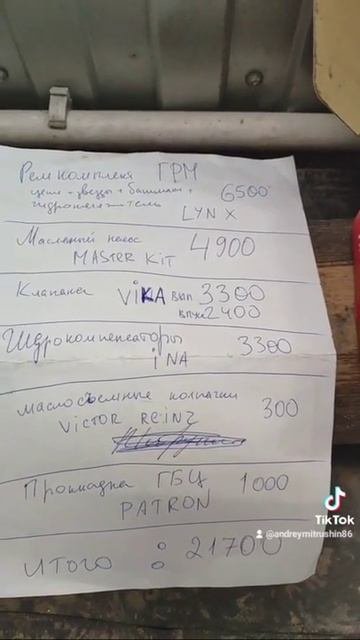 Ремкомплект ГРМ
цепи + звёзды + башмаки +
гидронатяжитель 6500
LYNX
Масляный насос 4900
MASTER KIT
Клапана VIKA вып 3300
впуск 2400
Гидрокомпенсаторы 3300
iNA
маслосъемные колпачки 300
VICTOR REINZ
Прокладка ГБЦ 1000
PATRON
ИТОГО : 21700
TikTok
@andreymitrushin86